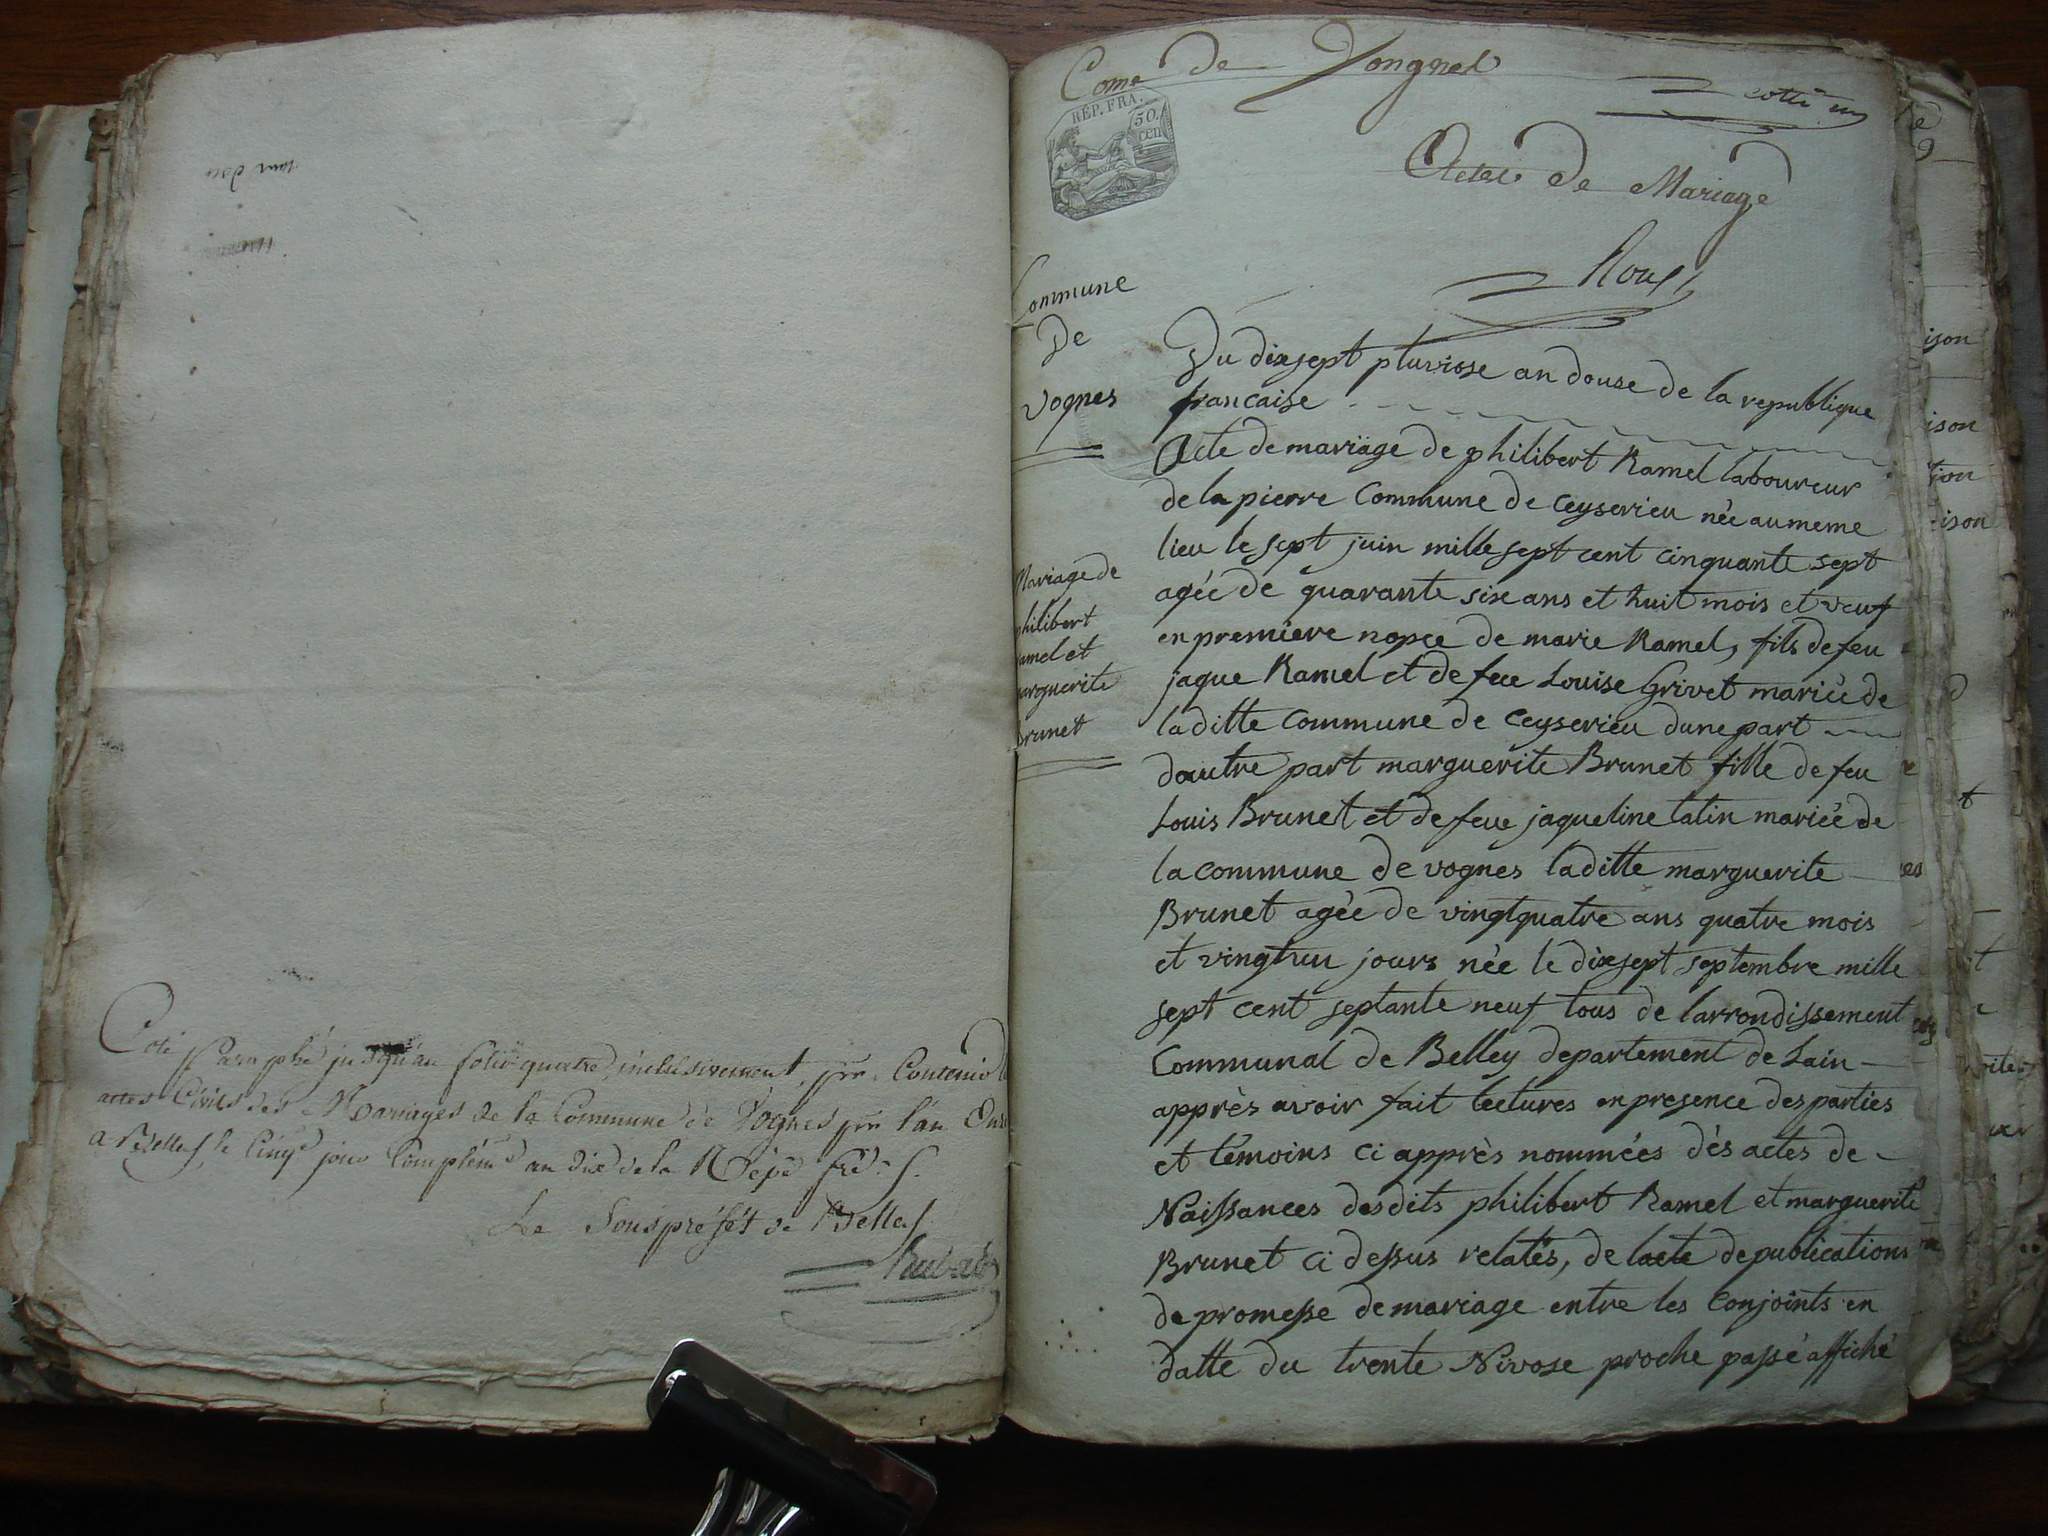 Coté Paraphé jusqu'au folio quatre inclusivement, pr. Contenir
actes Civils des Mariages de la Commune de Vognes pr l'an
a Belley, le Cinqe jour Complémre an dix de la Répe frse.
Le Souspréfét de Belley
Come de Vongnes
RÉP. FRA.
50.
cen
Actes de Mariage
Commune
De
Vognes
Du dixsept pluviose an douse de la republique
francaise
Mariage de
philibert
Ramel et
marguerite
Brunet
Acte de mariage de philibert Ramel laboureur
de la pierre Commune de Ceyserieu née au meme
lieu le sept juin mille sept cent cinquante sept
agée de quarante six ans et huit mois et veuf
en premiere nopce de marie Ramel, fils de feu
jaque Ramel et de feue Louise Grivet mariée de
laditte Commune de Ceyserieu dune part
dautre part marguerite Brunet fille de feu
Louis Brunet et de feue jaqueline latin mariée de
la commune de vognes laditte marguerite
Brunet agée de vingtquatre ans quatre mois
et vingthun jours née le dixsept septembre mille
sept cent septante neuf tous de larrondissement
Communal de Belley departement de Lain
apprès avoir fait lectures en presence des parties
et témoins ci apprès nommées dès actes de
Naissances desdits philibert Ramel et marguerite
Brunet ci dessus relatés, de lacte de publications
de promesse de mariage entre les Conjoints en
datte du trente Nivose proche passé affiché